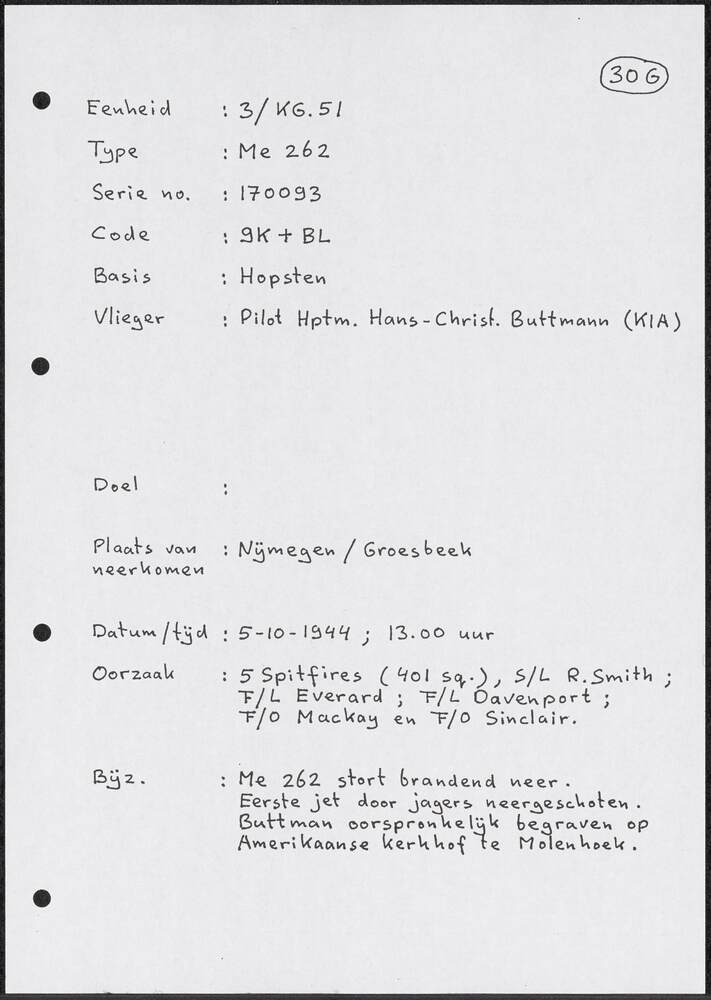 30 G
Eenheid : 3/KG.51
Type : Me 262
Serie no. : 170093
Code : 9K + BL
Basis : Hopsten
Vlieger : Pilot Hptm. Hans-Christ. Buttmann (KIA)
Doel :
Plaats van : Nijmegen / Groesbeek
neerkomen
Datum/tijd : 5-10-1944 ; 13.00 uur
Oorzaak : 5 Spitfires (401 sq.), S/L R.Smith ;
F/L Everard ; F/L Davenport ;
F/O Mackay en F/O Sinclair.
Bijz. : Me 262 stort brandend neer.
Eerste jet door jagers neergeschoten.
Buttman oorspronkelijk begraven op
Amerikaanse kerkhof te Molenhoek.